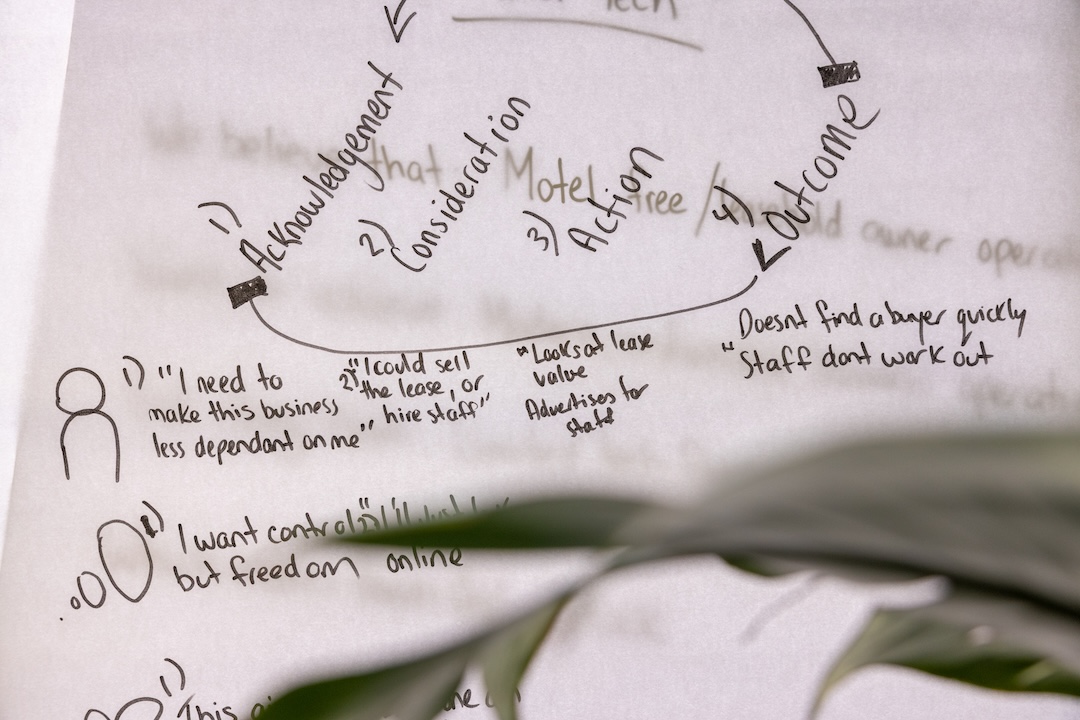 Tech
1) Acknowledgement
2) Consideration
3) Action
4) Outcome
We believe that Motel free / leasehold owner
1) "I need to
make this business
less dependant on me"
2) "I could sell
the lease, or
hire staff"
"Looks at lease
value
Advertises for
staff
Doesnt find a buyer quickly
"Staff dont work out
1) I want control
but freedom
online
1) This